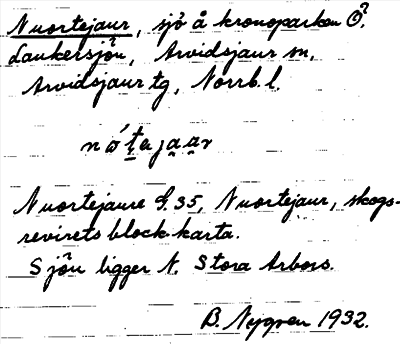 Nuortejaur, sjö å kronoparken Ö.
Laukersjön, Arvidsjaur sn,
Arvidsjaur tg, Norrb. l.
nớt̲ajạạr
Nuortejaure G. 35, Nuortejaur, skogs-
revirets block-karta.
Sjön ligger N. Stora Arbors.
B. Nygren 1932.